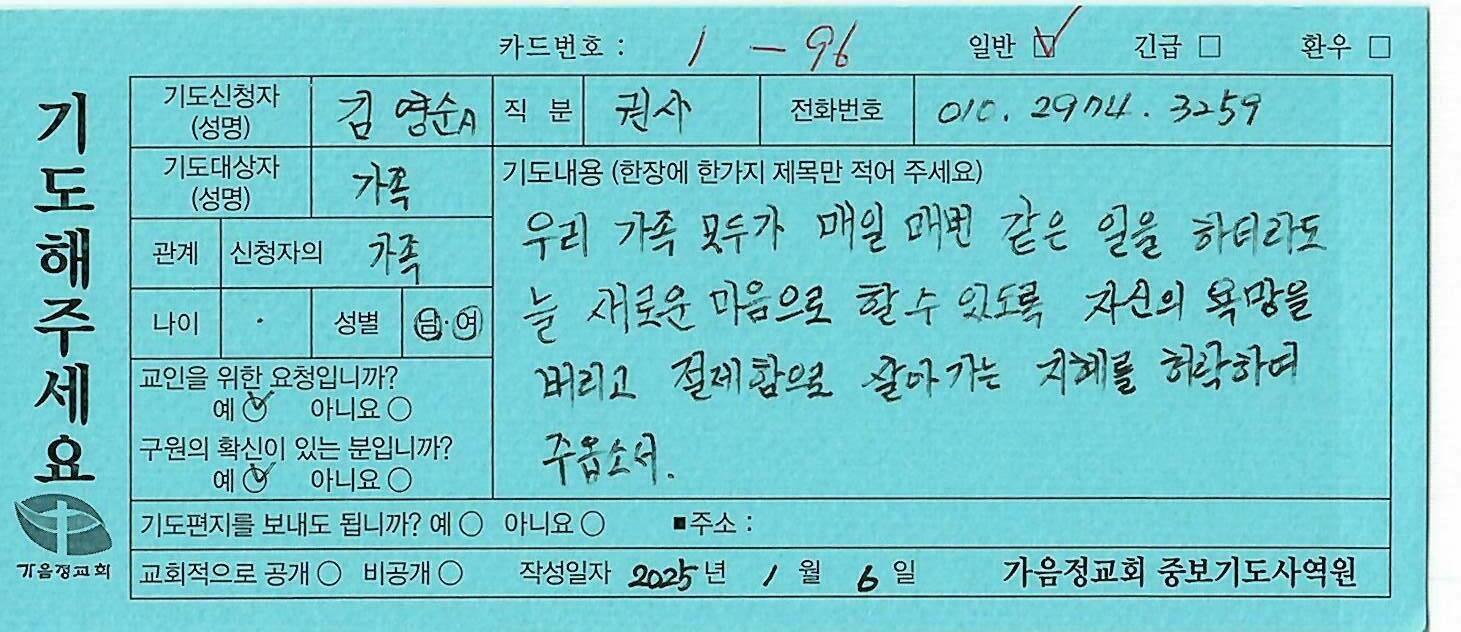 카드번호 : 1 - 96 일반 ☑ 긴급 □ 환우 □
기도해주세요
가음정교회
기도신청자 (성명) 김영순A 직 분 권사 전화번호 010. 2974. 3259
기도대상자 (성명) 가족
관계 신청자의 가족
나이 · 성별 남·여
교인을 위한 요청입니까?
예 ○ 아니요 ○
구원의 확신이 있는 분입니까?
예 ○ 아니요 ○
기도내용 (한장에 한가지 제목만 적어 주세요)
우리 가족 모두가 매일 매번 같은 일을 하더라도
늘 새로운 마음으로 할 수 있도록 자신의 욕망을
버리고 절제함으로 살아가는 지혜를 허락하여
주옵소서.
기도편지를 보내도 됩니까? 예 ○ 아니요 ○ ■주소 :
교회적으로 공개 ○ 비공개 ○ 작성일자 2025 년 1 월 6 일 가음정교회 중보기도사역원